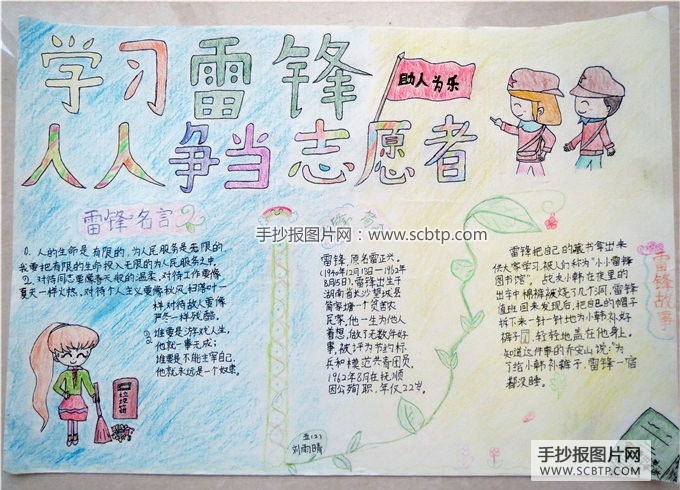 学习雷锋
助人为乐
人人争当志愿者
雷锋名言
手抄报图片网 www.scbtp.com
1. 人的生命是有限的,为人民服务是无限的,
我要把有限的生命投入无限的为人民服务之中。
2. 对待同志要像春天般的温柔,对待工作要像
夏天一样火热,对待个人主义要像秋风扫落叶一
样,对待敌人要像
严冬一样残酷。
3. 谁要是游戏人生,
他就一事无成;
谁要是不能主宰自己,
他就永远是一个奴隶。
垃圾箱
雷锋,原名雷正兴。
(1940年12月18日—1962年
8月15日),雷锋出生于
湖南省长沙望城县
简家塘一个贫苦农
民家,他一生为他人
着想,做了无数件好
事,被评为节约标
兵和模范共青团员。
1962年8月在抚顺
因公殉职,年仅22岁。
五(2)
刘雨晴
雷锋故事
雷锋把自己的藏书拿出来
供大家学习,被人们称为“小小雷锋
图书馆”,战友小韩在夜里的
出车中棉裤被烧了几个洞,雷锋
值班回来发现后,把自己的帽子
拆下来一针一针地为小韩补好
裤子,轻轻地盖在他身上。
知道这件事的乔安山说:“为
了给小韩补裤子,雷锋一宿
都没睡。
手抄报图片网
WWW.SCBTP.COM